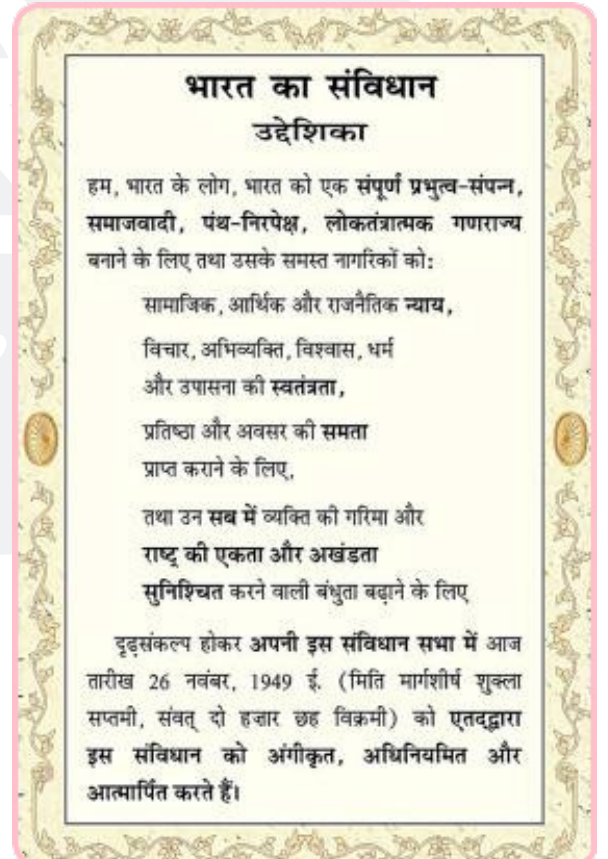 भारत का संविधान
उद्देशिका
हम, भारत के लोग, भारत को एक संपूर्ण प्रभुत्व-संपन्न,
समाजवादी, पंथ-निरपेक्ष, लोकतंत्रात्मक गणराज्य
बनाने के लिए तथा उसके समस्त नागरिकों को:
सामाजिक, आर्थिक और राजनैतिक न्याय,
विचार, अभिव्यक्ति, विश्वास, धर्म
और उपासना की स्वतंत्रता,
प्रतिष्ठा और अवसर की समता
प्राप्त कराने के लिए,
तथा उन सब में व्यक्ति की गरिमा और
राष्ट् की एकता और अखंडता
सुनिश्चित करने वाली बंधुता बढ़ाने के लिए
दृढ़संकल्प होकर अपनी इस संविधान सभा में आज
तारीख 26 नवंबर, 1949 ई. (मिति मार्गशीर्ष शुक्ला
सप्तमी, संवत् दो हजार छह विक्रमी) को एतद्द्वारा
इस संविधान को अंगीकृत, अधिनियमित और
आत्मार्पित करते हैं।